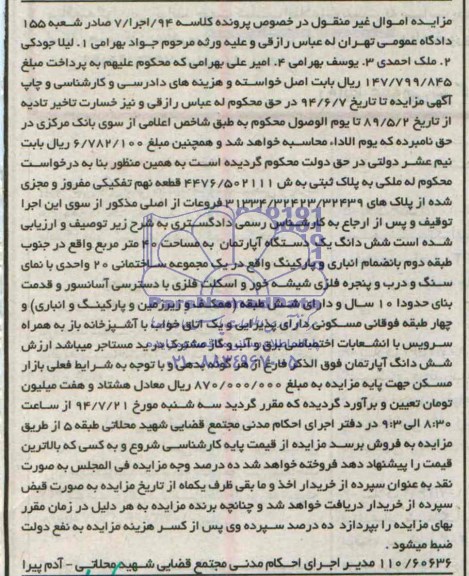 مزایـده امـوال غیر منقـول در خصوص پرونده کلاسـه ۹۴/اجرا/۷ صادر شـعبه ۱۵۵
دادگاه عمومـی تهـران له عباس رازقی و علیه ورثه مرحوم جـواد بهرامی ۱. لیلا جودکی
۲. ملک احمدی ۳. یوسف بهرامی ۴. امیر علی بهرامی که محکوم علیهم به پرداخت مبلغ
۱۴۷/۷۹۹/۸۴۵ ریال بابت اصل خواسـته و هزینه های دادرسـی و کارشناسی و چاپ
آگهی مزایده تا تاریخ ۹۴/۶/۷ در حق محکوم له عباس رازقی و نیز خسارت تاخیر تادیه
از تاریخ ۸۹/۵/۲ تا یوم الوصول محکوم به طبق شاخص اعلامی از سوی بانک مرکزی در
حق نامبرده که یوم الاداء محاسـبه خواهد شد و همچنین مبلغ ۶/۷۸۲/۱۰۰ ریال بابت
نیم عشـر دولتی در حق دولت محکوم گردیده اسـت به همین منظور بنا به درخواسـت
محکوم له ملکی به پلاک ثبتی به ش ۴۴۷۶/۵۰۲۱۱۱ قطعه نهم تفکیکی مفروز و مجزی
شده از پلاک های ۳۱۳۳۴/۳۲۴۲۳/۳۲۴۳۹ فروعات از اصلی مذکور از سوی این اجرا
توقیف و پس از ارجاع به کارشـناس رسمی دادگستـری به شرح زیر توصیف و ارزیابی
شده است شش دانگ یک دسـتگاه آپارتمان به مساحت ۴۰ متر مربع واقع در جنوب
طبقه دوم بانضمام انباری و پارکینگ واقع در یک مجموعه سـاختمانی ۲۰ واحدی با نمای
سـنگ و درب و پنجره فلزی شیشـه خور و اسکلت فلزی با دسترسی آسانسور و قدمت
بنای حدودا ۱۰ سـال و دارای شـش طبقه (همکـف و زیرزمین و پارکینـگ و انباری) و
چهار طبقه فوقانی مسـکونی دارای پذیرایی و یک اتاق خواب با آشـپزخانه باز به همراه
سـرویس با انشـعابات اختصاصی برق و آب و گاز مشـترک در ید مستاجر میباشد ارزش
شش دانگ آپارتمان فوق الذکر فارغ از هر گونه بدهی و با توجه به شرایط فعلی بازار
مسـکن جهت پایه مزایده به مبلغ ۸۷۰/۰۰۰/۰۰۰ ریال معادل هشتاد و هفت میلیون
تومان تعیین و برآورد گردیده که مقرر گردید سـه شـنبه مورخ ۹۴/۷/۲۱ از سـاعت
۸:۳۰ الی ۹:۳ در دفتر اجرای احکام مدنی مجتمع قضایی شهید محلاتی طبقه ۵ از طریق
مزایده به فروش برسـد مزایده از قیمت پایه کارشناسـی شروع و به کسی که بالاترین
قیمت را پیشنهاد دهد فروخته خواهد شد ده درصد وجه مزایده فی المجلس به صورت
نقد به عنوان سپرده از خریدار اخذ و ما بقی ظرف یکماه از تاریخ مزایده به صورت قبض
سپرده از خریدار دریافت خواهد شد و چنانچه برنده مزایده به هر دلیل در زمان مقرر
بهای مزایده را بپردازد ده درصد سـپرده وی پس از کسـر هزینه مزایده به نفع دولت
ضبط میشود .
۱۱۰/۶۰۶۳۶ مدیـر اجـرای احـکام مدنـی مجتمع قضایی شـهید محلاتـی - آدم پیرا